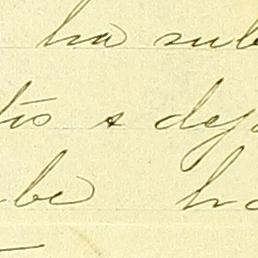 ha sub
tis s dep
be ha